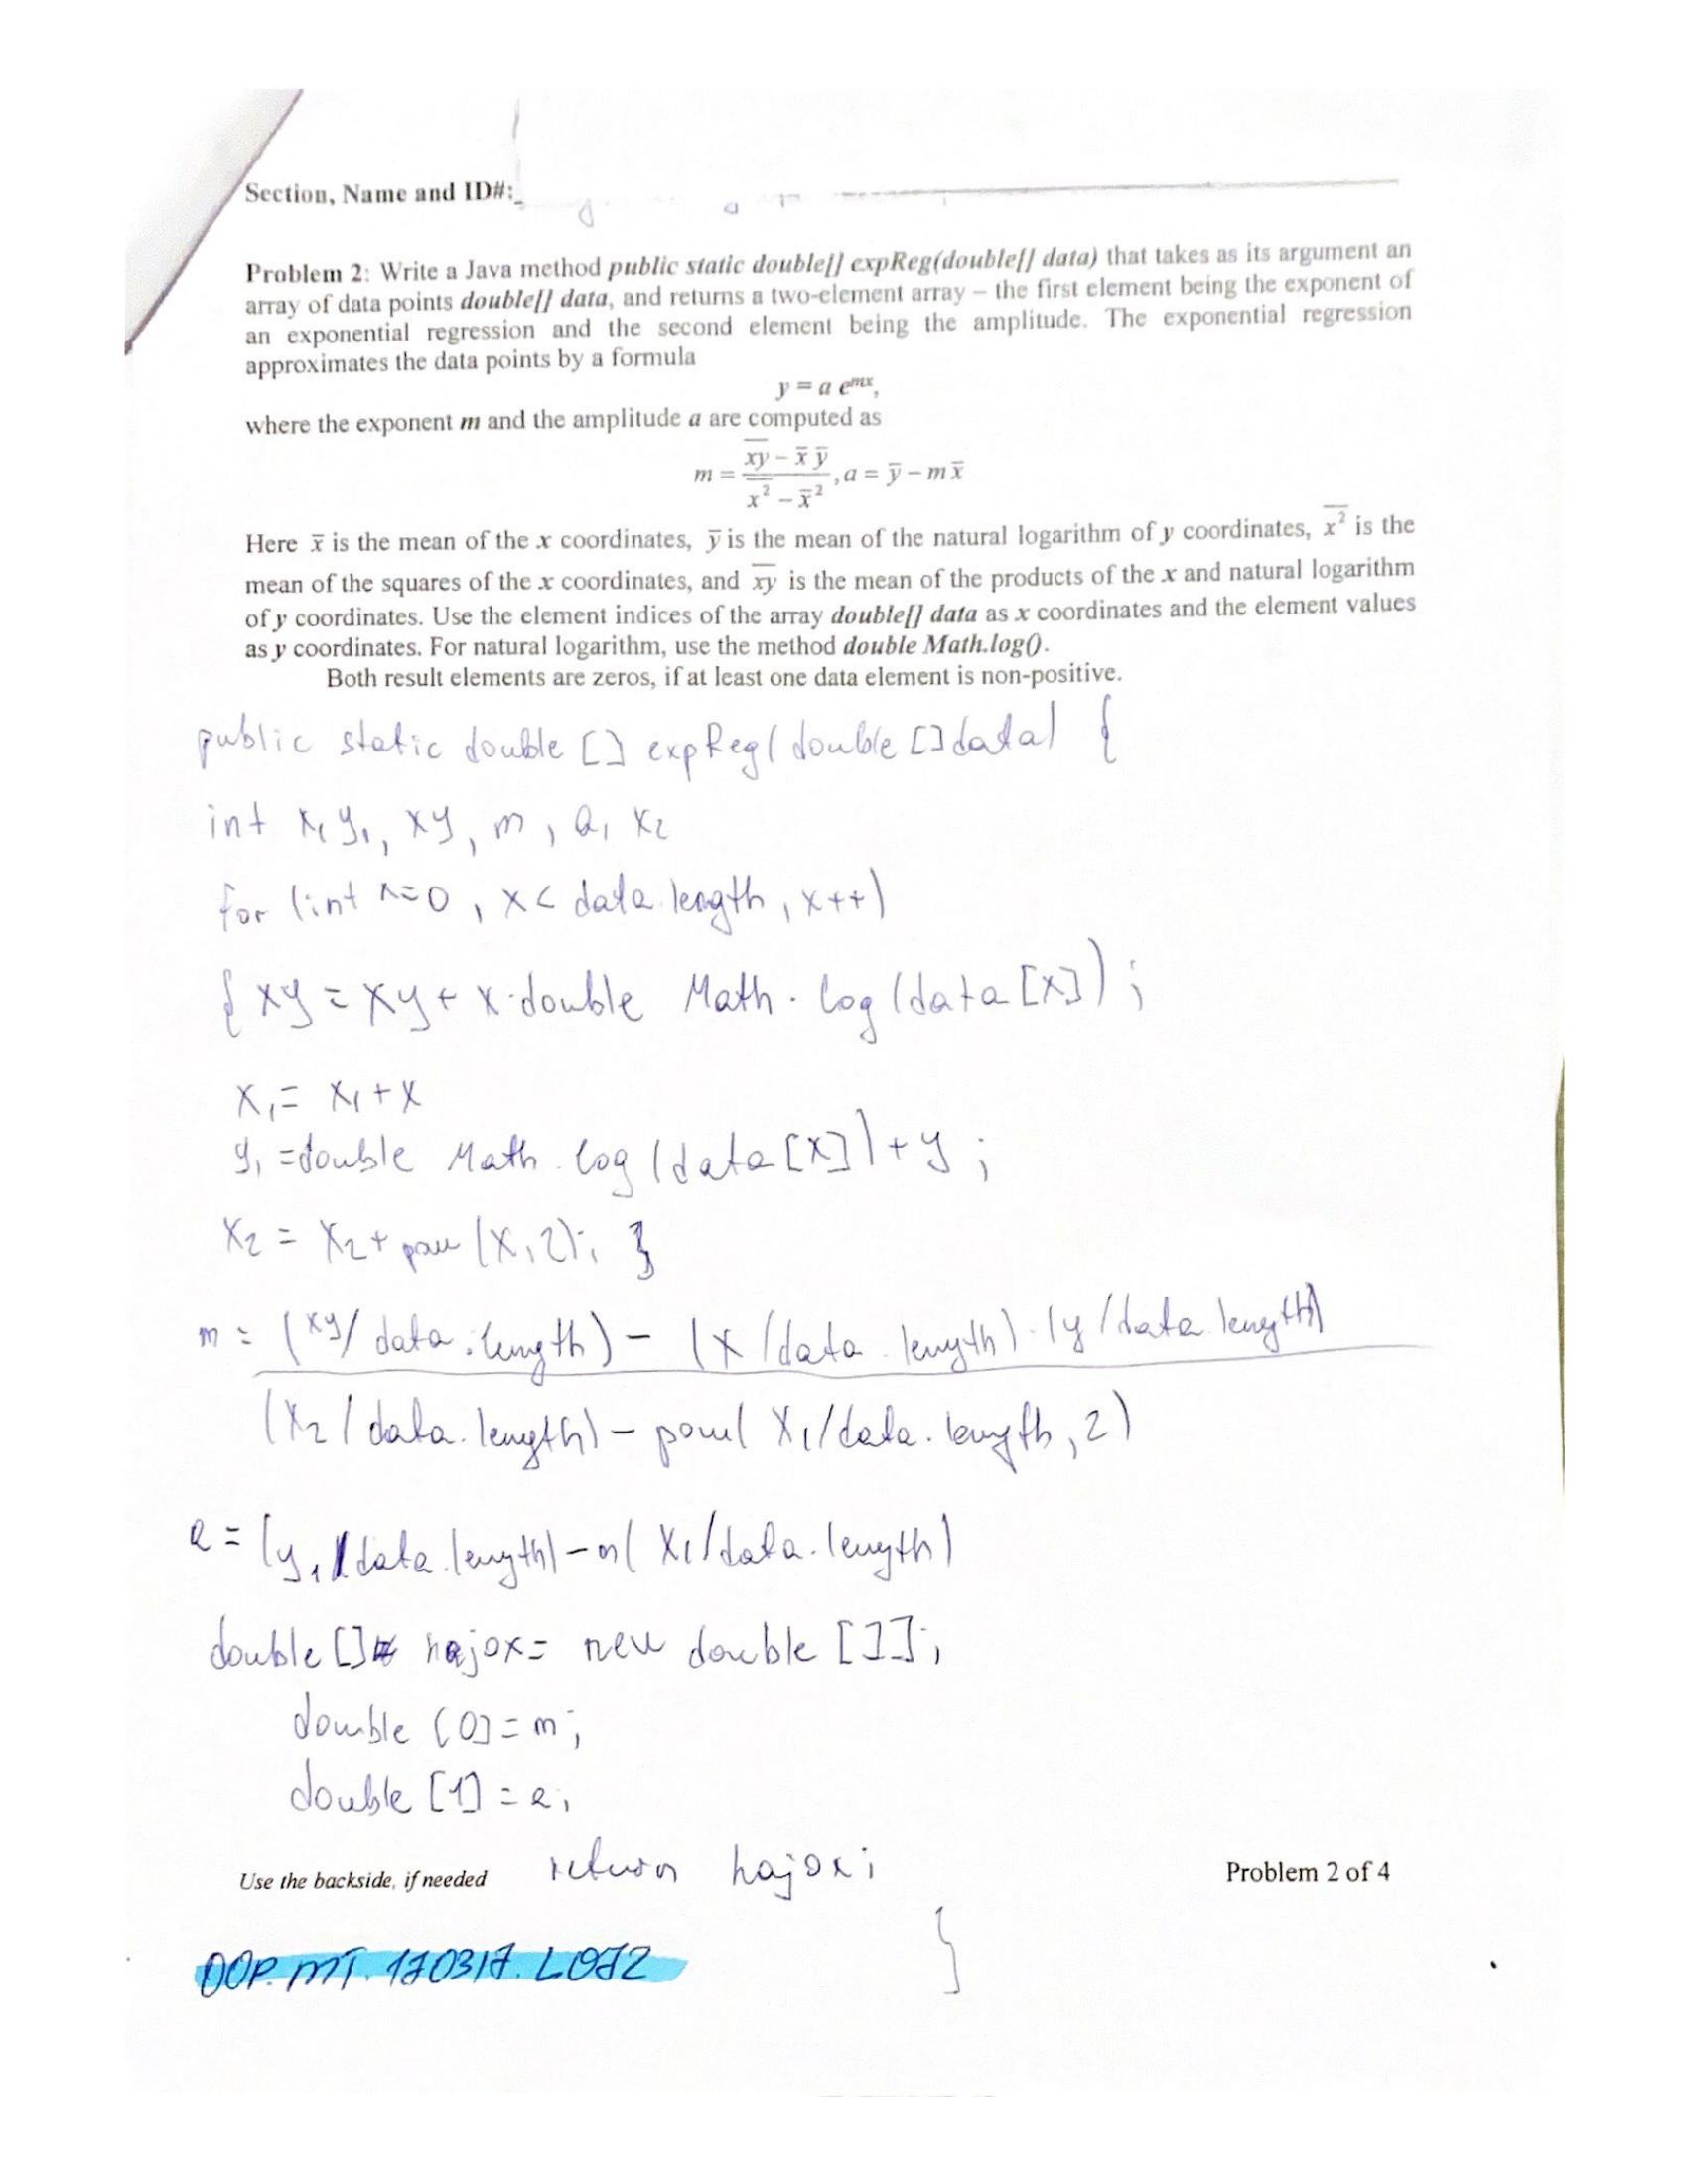 Section, Name and ID#:
Problem 2: Write a Java method public static double[] expReg(double[] data) that takes as its argument an
array of data points double[] data, and returns a two-element array – the first element being the exponent of
an exponential regression and the second element being the amplitude. The exponential regression
approximates the data points by a formula
y = a e^{mx},
where the exponent m and the amplitude a are computed as
m = \frac{\overline{xy} - \bar{x} \bar{y}}{\overline{x^2} - \bar{x}^2}, a = \bar{y} – m \bar{x}
Here \bar{x} is the mean of the x coordinates, \bar{y} is the mean of the natural logarithm of y coordinates, \overline{x^2} is the
mean of the squares of the x coordinates, and \overline{xy} is the mean of the products of the x and natural logarithm
of y coordinates. Use the element indices of the array double[] data as x coordinates and the element values
as y coordinates. For natural logarithm, use the method double Math.log().
Both result elements are zeros, if at least one data element is non-positive.
public static double [] expReg( double [] data) {
int x₁ y₁, xy, m, a, x₂
for (int x=0, x < data.length, x++)
{ xy = xy + x·double Math.log(data[x]);
x₁ = x₁ + x
y₁ = double Math.log(data[x]) + y;
x₂ = x₂ + pow(x,2); }
m = (xy/data.length) - (x/data.length)·(y/data.length)
(x₂/data.length) - pow( x₁/data.length, 2)
a = (y₁/data.length) - m( x₁/data.length)
double [] hajox = new double []];
double [0] = m;
double [1] = a;
return hajox;
Use the backside, if needed
Problem 2 of 4
}
OOP.MT.170317.L072